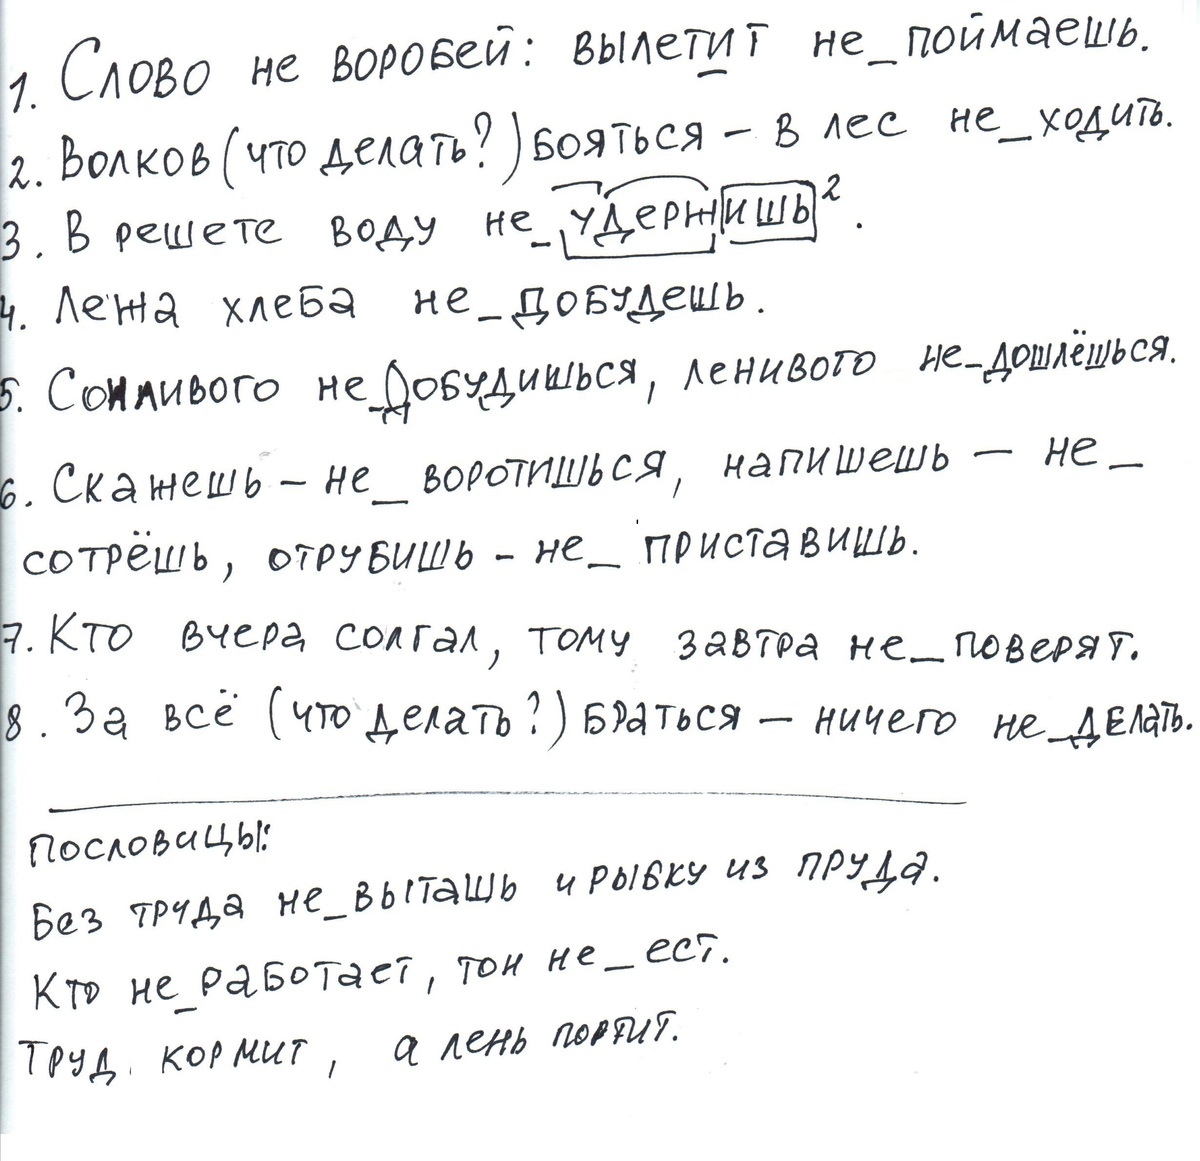 1. Слово не воробей: вылетит не_поймаешь.
2. Волков (что делать?) бояться – в лес не_ходить.
3. В решете воду не_удержишь².
4. Лежа хлеба не_добудешь.
5. Сонливого не_добудишься, ленивого не_дошлёшься.
6. Скажешь – не_воротишься, напишешь – не_
сотрёшь, отрубишь – не_приставишь.
7. Кто вчера солгал, тому завтра не_поверят.
8. За всё (что делать?) браться – ничего не_делать.
Пословицы:
Без труда не_выташь и рыбку из пруда.
Кто не_работает, тон не_ест.
Труд кормит, а лень портит.